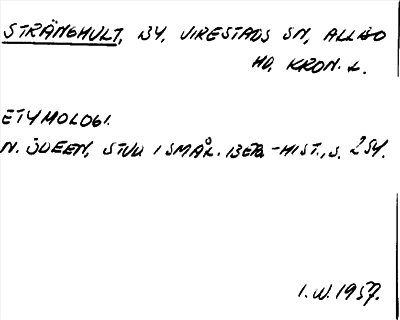 STRÄNGHULT, BY, VIRESTADS SN, ALLBO
HD, KRON. L.
ETYMOLOGI.
N. ÖDEEN, STUD I SMÅL. BEB. -HIST., S. 254.
I. W. 1957.